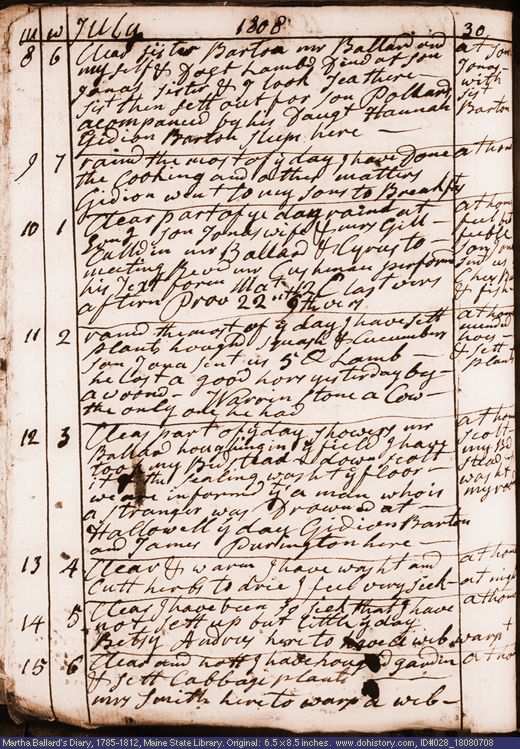 m w July 1808 30
8 6 Clear sister Barton mr Ballard and at son
my self & Dogt Lambd Dind at son Jonas
Jonas sister & I took Tea there with
sist then sett out for son Pollards sist
acompanced by his Daugt Hannah Barton
Gidion Barton sleeps here
9 7 raind the most of ye day I have Done at home
the Cooking and other matters
Gidion went to my sons to Breakft
10 1 Clear part of ye day raind at at home
son Jons wife & mrs Gill feeble
Calld in mr Ballard & Cyrus to son Jons
meeting Revd mr Cushman performd
his Text foren Mat 12 C last vers
aftern Prov 22nd 6th vers & fish
11 2 raind the most of ye day I have sett at home
plants houghd squash & Cucumbers
son Jona sent us 5 lb Lamb
he Lost a good hors yesterday by & sett
a wound Warrin Stone a Cow plants
the only one he had
12 3 Clear part of ye day showers mr at home
Ballard houghing in ye field I have
took my Bed stead down scolt my Bed
it & the sealing washt ye floor stead
we are informd yt a man who is washt
a stranger was Drownd at my room
Hallowell ys day Gidion Barton
and James Purington here
13 4 Clear & warm I have washt and at home
Cutt herbs to drie I feel very seek at night
14 5 Clear I have been so seek that I have at home
not sett up but little ys day
Betsy Andrus here to weeve web warpt
15 6 Clear and hott I have houghd gardin at home
& sett Cabbage plants
mrs Smith here to warp a web
Martha Ballard's Diary, 1785-1812, Maine State Library. Original: 6.5 x 8.5 inches. www.dohistory.com, ID#028_18080708